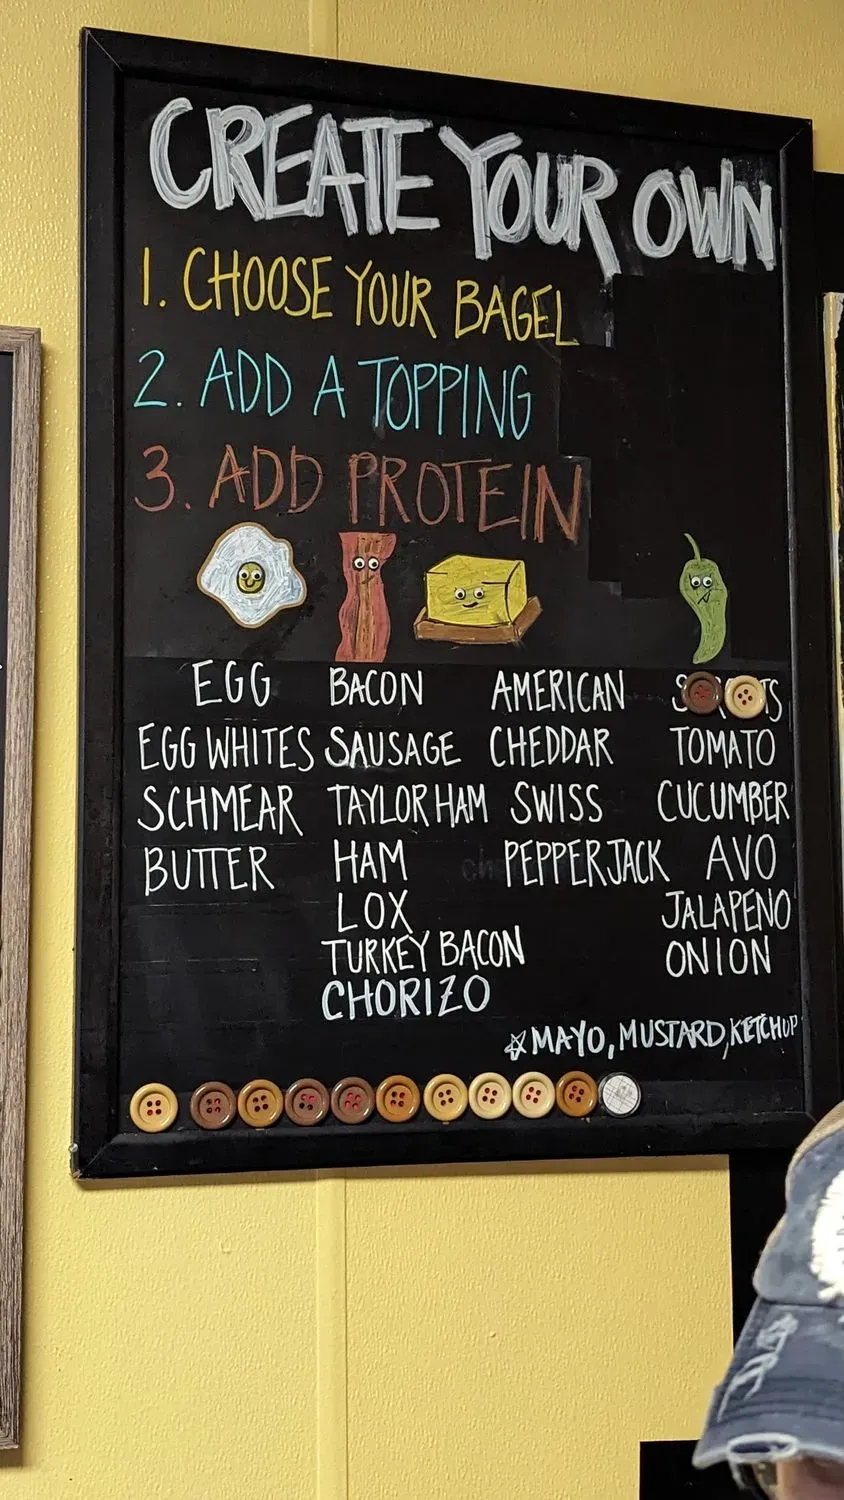 CREATE YOUR OWN
1. CHOOSE YOUR BAGEL
2. ADD A TOPPING
3. ADD PROTEIN
EGG BACON AMERICAN
EGG WHITES SAUSAGE CHEDDAR TOMATO
SCHMEAR TAYLOR HAM SWISS CUCUMBER
BUTTER HAM PEPPERJACK AVO
LOX JALAPENO
TURKEY BACON ONION
CHORIZO
☆MAYO, MUSTARD, KETCHUP